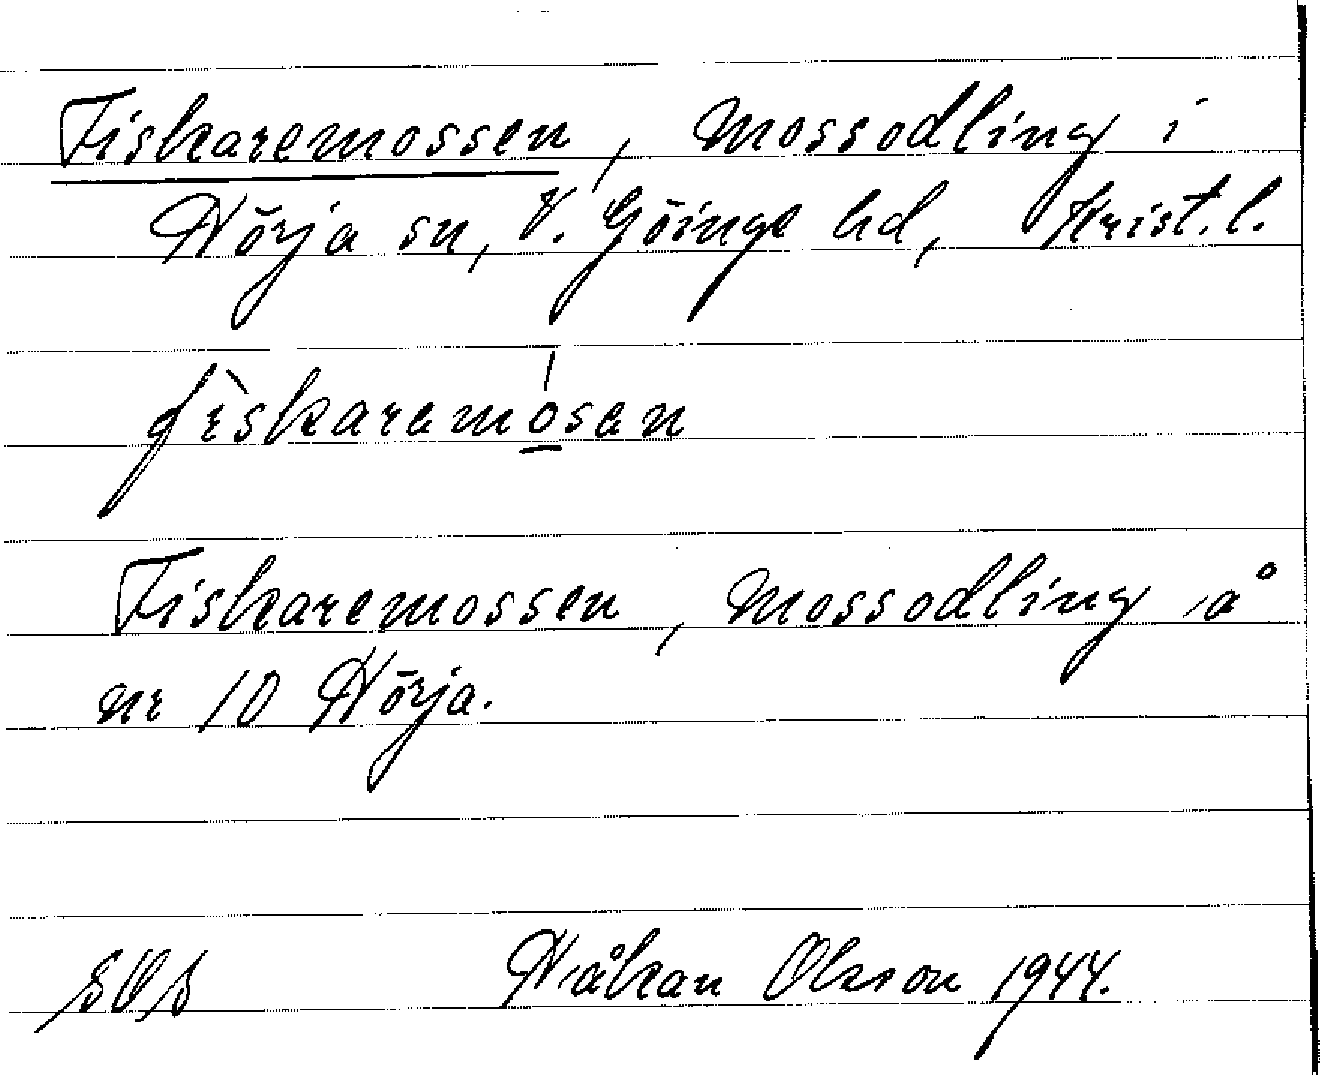 Fiskaremossen, Mossodling i
Hörja sn, V. Göinge hd, Krist. l.
fìskaremósen
Fiskaremossen, Mossodling å
nr 10 Hörja.
Håkan Olsson 1944.